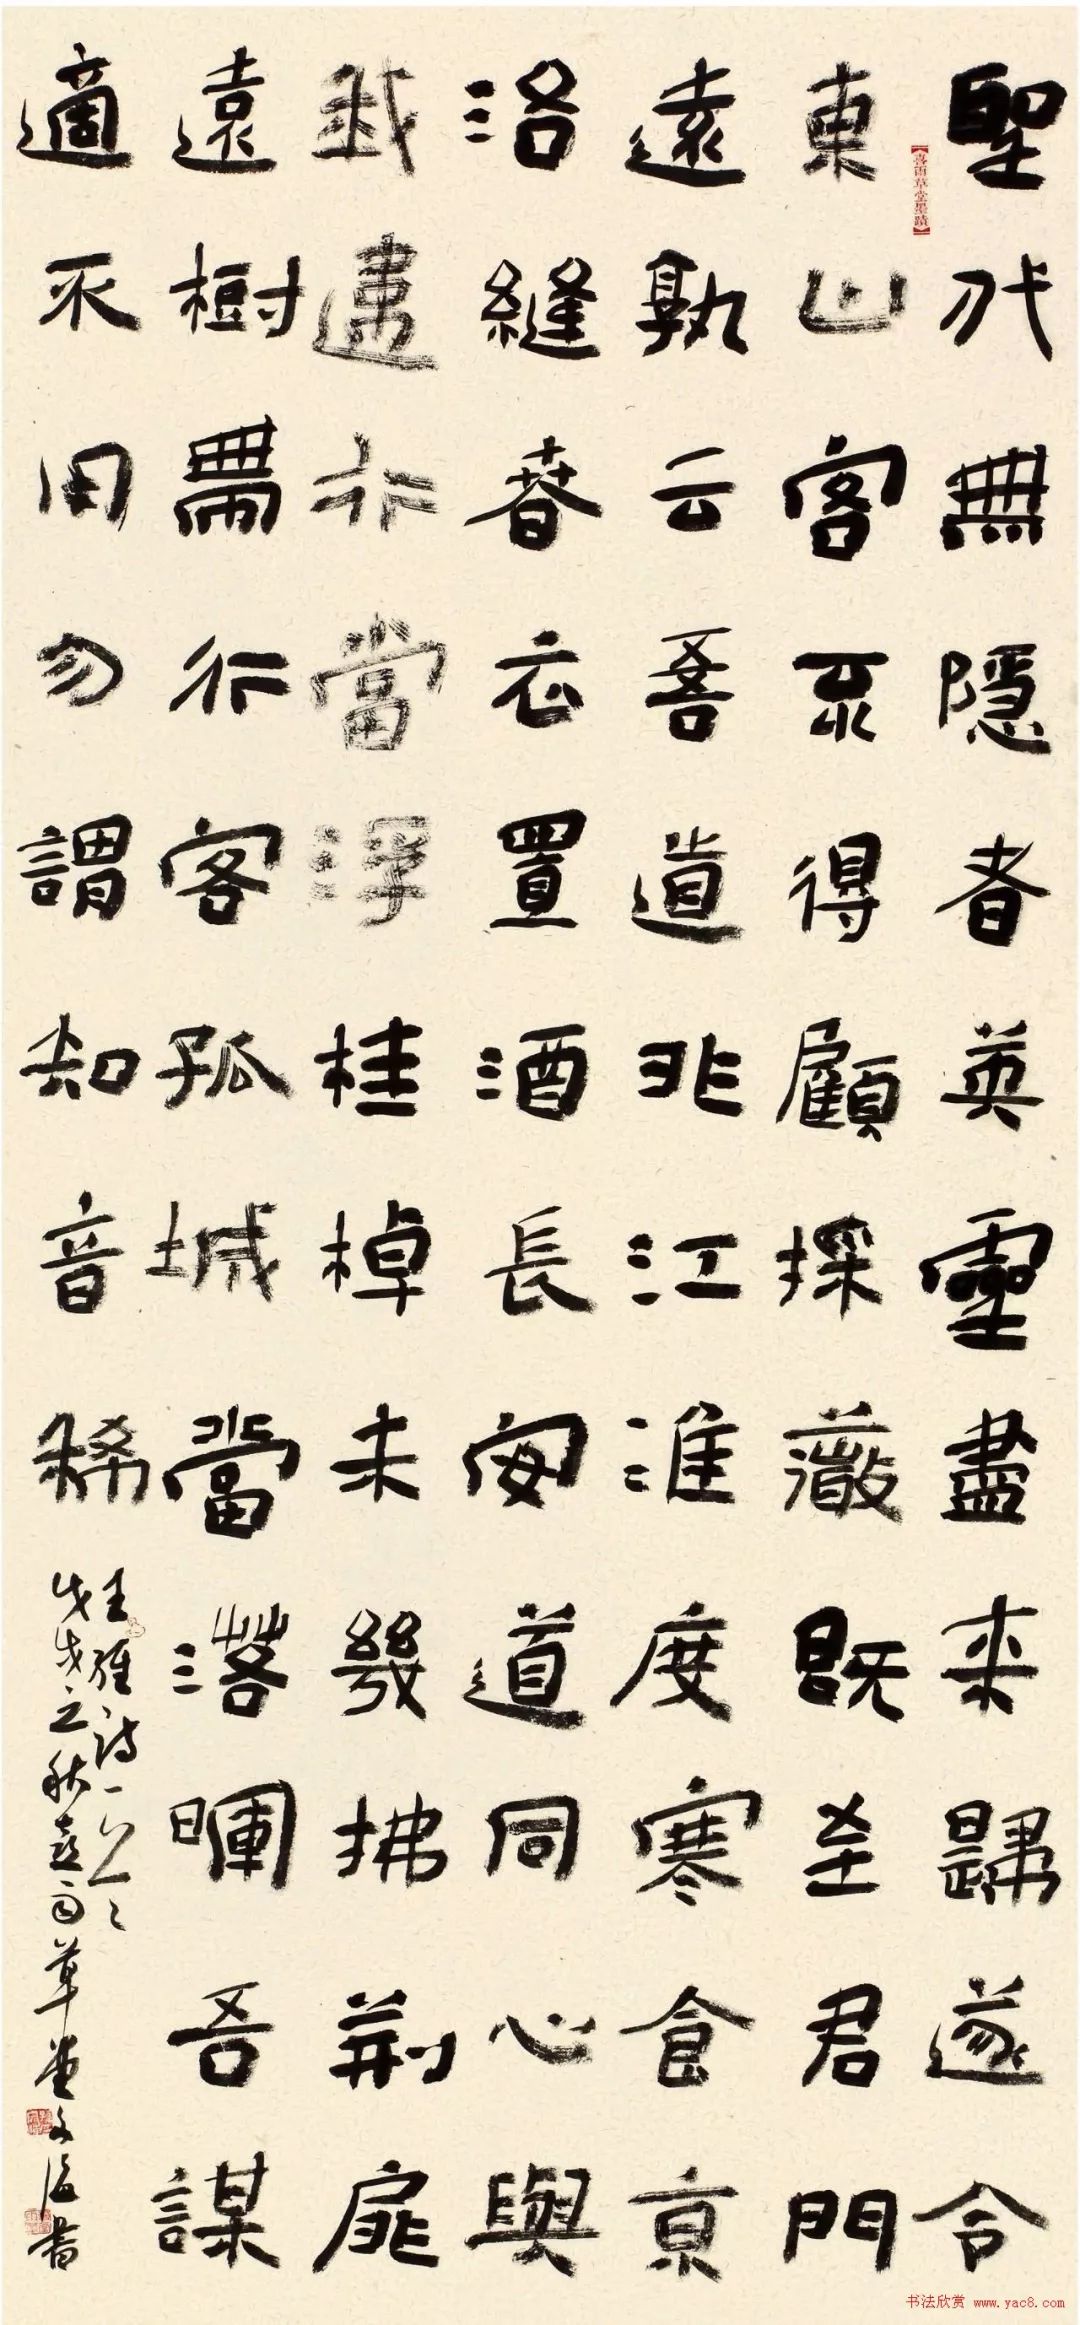 聖代無隱者英靈盡來歸遂令
東山客不得顧採薇既至君門
遠孰云吾道非江淮度寒食京
洛縫春衣置酒長安道同心與
我違行當浮桂棹未幾拂荊扉
遠樹帶行客孤城當落暉吾謀
適不用勿謂知音稀
王維詩一首
戊戌之秋喜雨草堂文書
【喜雨草堂墨蹟】
书法欣赏 www.yac8.com